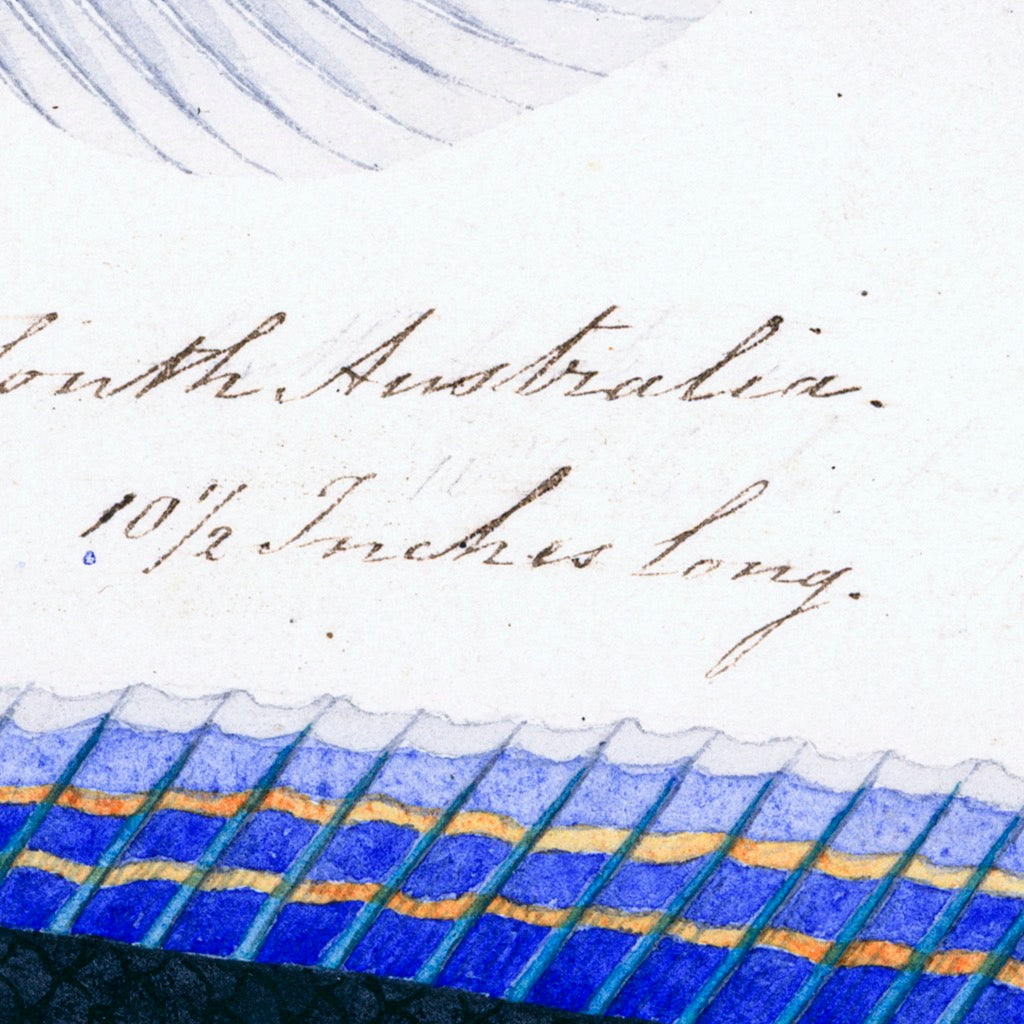 South Australia.
10 1/2 Inches long.